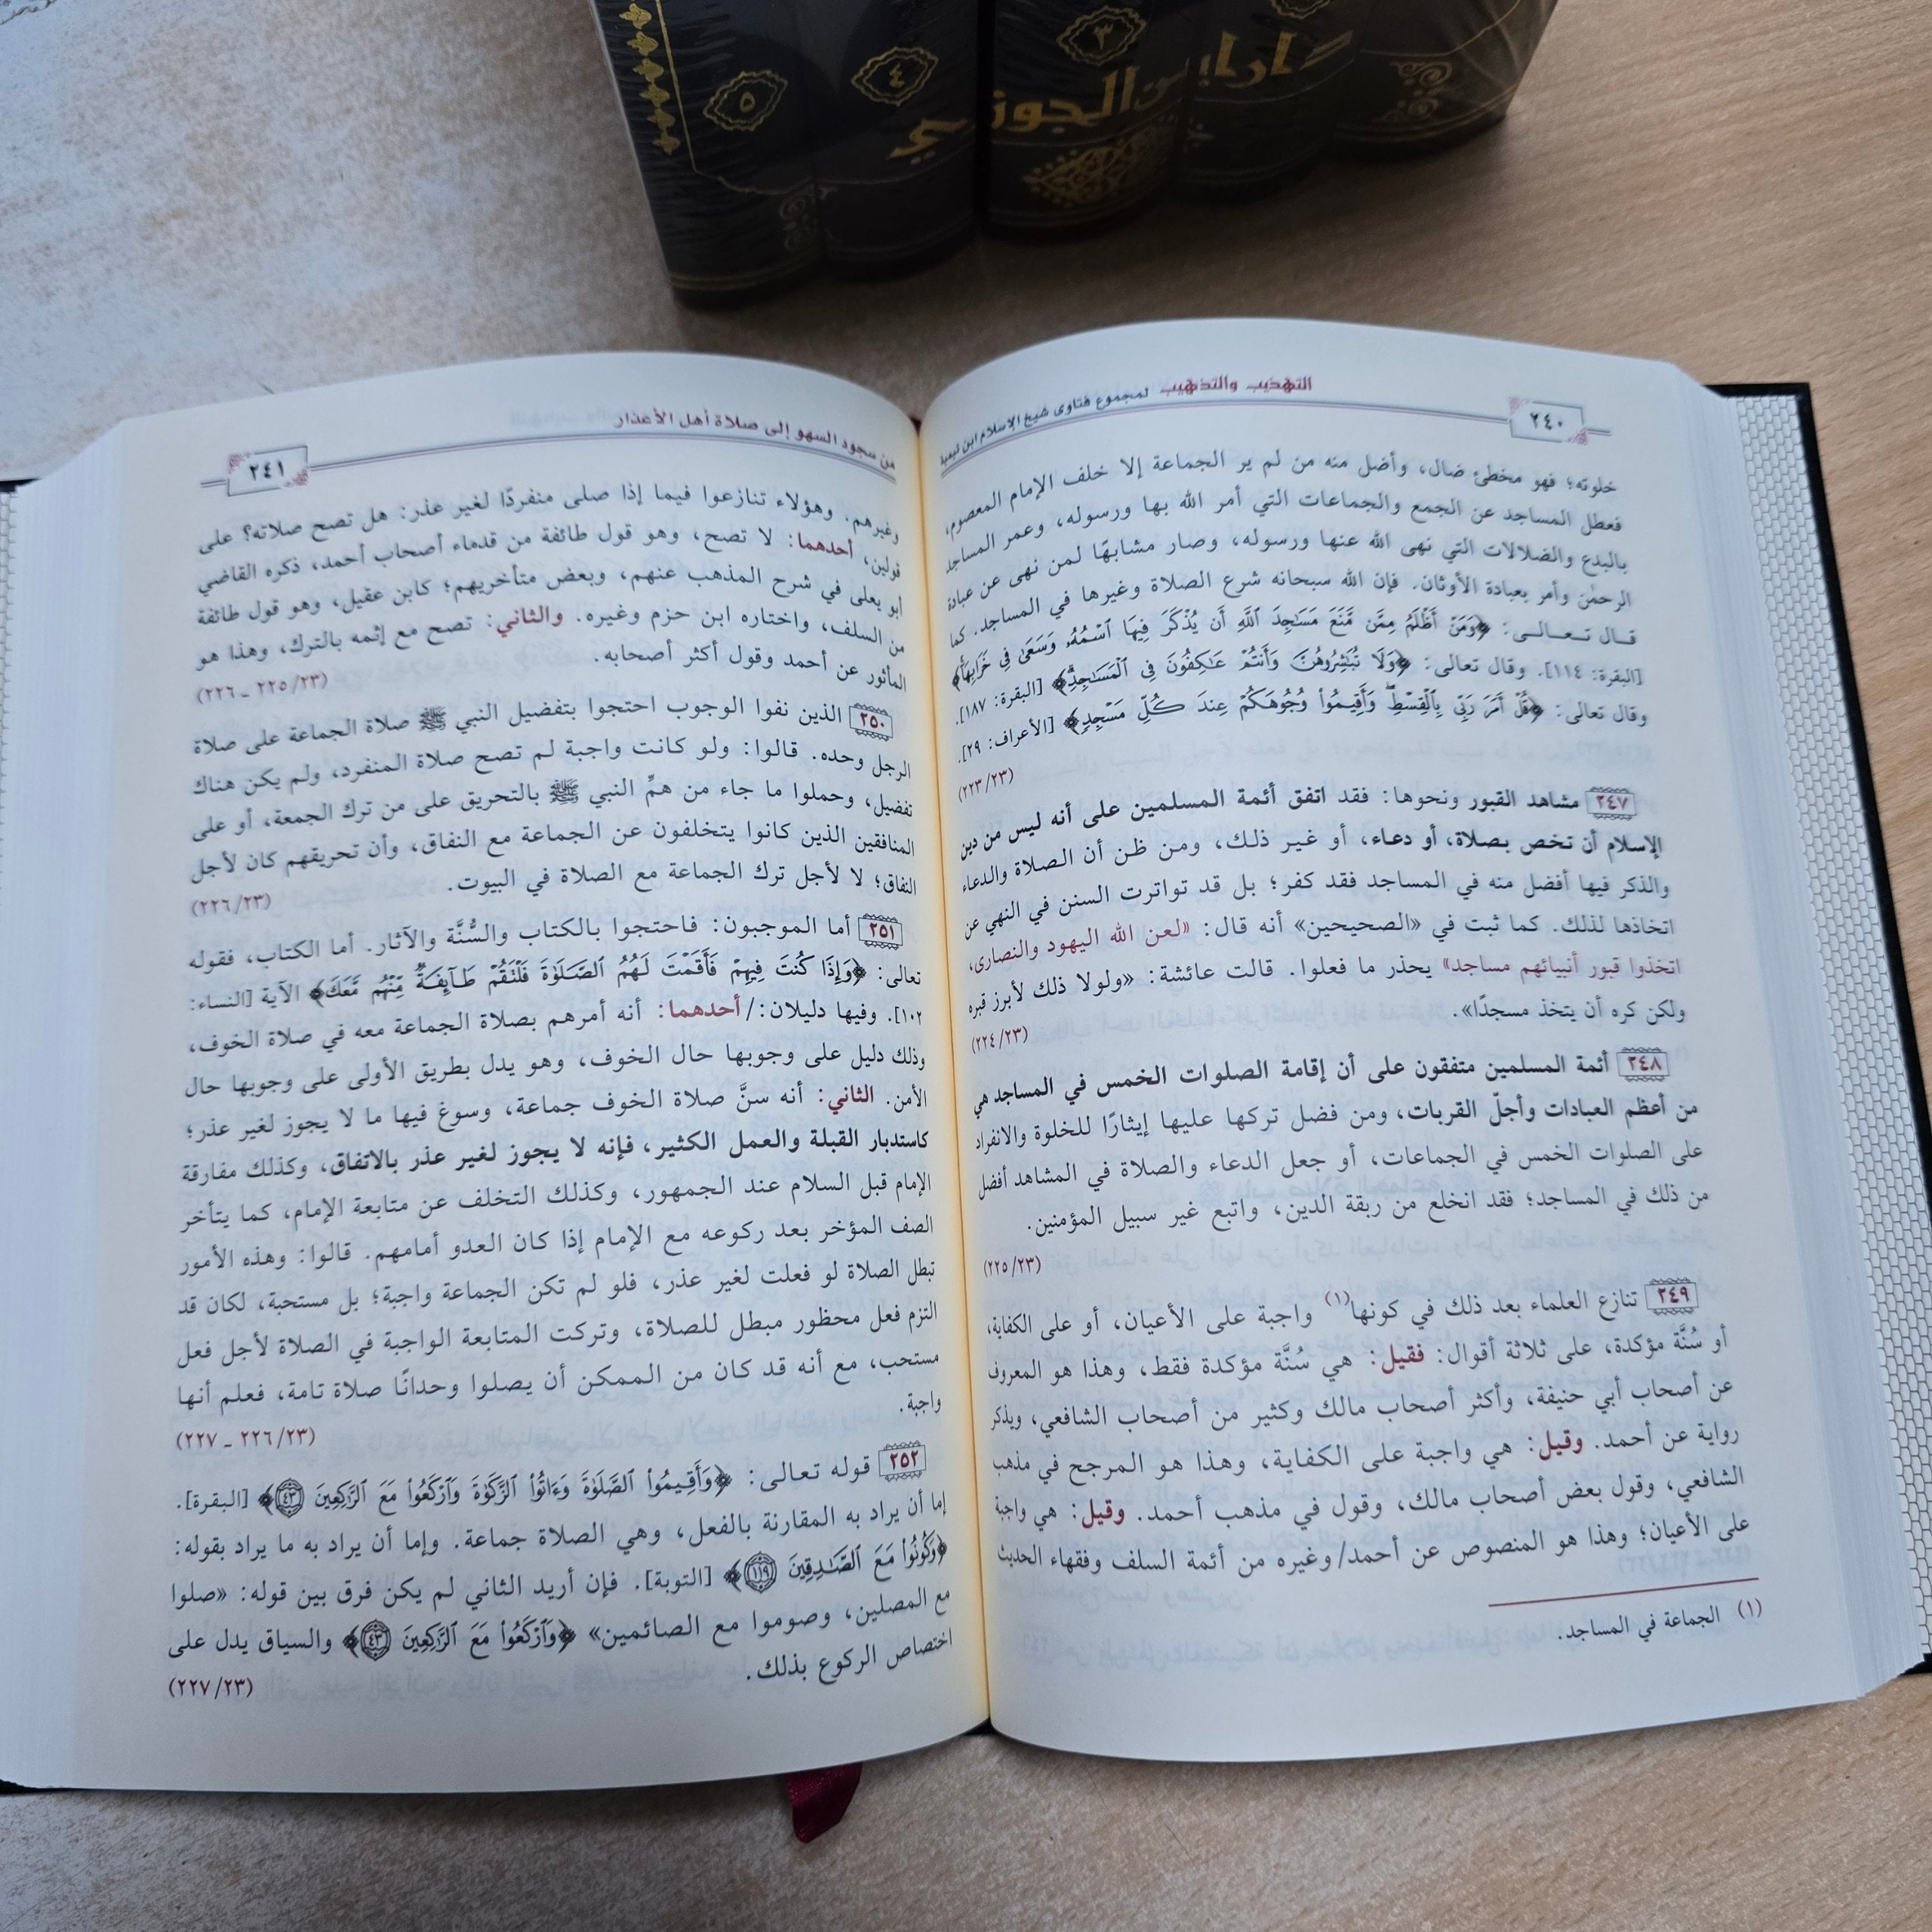 ٥
٤
٣
دار ابن الجوزي
التهذيب والتذهيب لمجموع فتاوى شيخ الإسلام ابن تيمية
٢٤٠
خلوته؛ فهو مخطئ ضال، وأضل منه من لم ير الجماعة إلا خلف الإمام المعصوم،
فعطل المساجد عن الجمع والجماعات التي أمر الله بها ورسوله، وعمر المساجد
بالبدع والضلالات التي نهى الله عنها ورسوله، وصار مشابهًا لمن نهى عن عبادة
الرحمٰن وأمر بعبادة الأوثان. فإن الله سبحانه شرع الصلاة وغيرها في المساجد. كما
قـال تـعـالـى: ﴿وَمَنْ أَظْلَمُ مِمَّن مَّنَعَ مَسَٰجِدَ ٱللَّهِ أَن يُذْكَرَ فِيهَا ٱسْمُهُۥ وَسَعَىٰ فِى خَرَابِهَآ﴾
[البقرة: ١١٤]. وقال تعالى: ﴿وَلَا تُبَٰشِرُوهُنَّ وَأَنتُمْ عَٰكِفُونَ فِى ٱلْمَسَٰجِدِ﴾ [البقرة: ١٨٧].
وقال تعالى: ﴿قُلْ أَمَرَ رَبِّى بِٱلْقِسْطِ وَأَقِيمُوا۟ وُجُوهَكُمْ عِندَ كُلِّ مَسْجِدٍ﴾ [الأعراف: ٢٩].
(٢٢٣/٢٣)
٢٤٧ مشاهد القبور ونحوها: فقد اتفق أئمة المسلمين على أنه ليس من دين
الإسلام أن تخص بصلاة، أو دعاء، أو غير ذلك، ومن ظن أن الصلاة والدعاء
والذكر فيها أفضل منه في المساجد فقد كفر؛ بل قد تواترت السنن في النهي عن
اتخاذها لذلك. كما ثبت في «الصحيحين» أنه قال: «لعن الله اليهود والنصارى،
اتخذوا قبور أنبيائهم مساجد» يحذر ما فعلوا. قالت عائشة: «ولولا ذلك لأبرز قبره
ولكن كره أن يتخذ مسجدًا».
(٢٢٤/٢٣)
٢٤٨ أئمة المسلمين متفقون على أن إقامة الصلوات الخمس في المساجد هي
من أعظم العبادات وأجلّ القربات، ومن فضل تركها عليها إيثارًا للخلوة والانفراد
على الصلوات الخمس في الجماعات، أو جعل الدعاء والصلاة في المشاهد أفضل
من ذلك في المساجد؛ فقد انخلع من ربقة الدين، واتبع غير سبيل المؤمنين.
(٢٢٥/٢٣)
٢٤٩ تنازع العلماء بعد ذلك في كونها(١) واجبة على الأعيان، أو على الكفاية،
أو سُنَّة مؤكدة، على ثلاثة أقوال: فقيل: هي سُنَّة مؤكدة فقط، وهذا هو المعروف
عن أصحاب أبي حنيفة، وأكثر أصحاب مالك وكثير من أصحاب الشافعي، ويذكر
رواية عن أحمد. وقيل: هي واجبة على الكفاية، وهذا هو المرجح في مذهب
الشافعي، وقول بعض أصحاب مالك، وقول في مذهب أحمد. وقيل: هي واجبة
على الأعيان؛ وهذا هو المنصوص عن أحمد/وغيره من أئمة السلف وفقهاء الحديث
(١) الجماعة في المساجد.
من سجود السهو إلى صلاة أهل الأعذار
٢٤١
وغيرهم. وهؤلاء تنازعوا فيما إذا صلى منفردًا لغير عذر: هل تصح صلاته؟ على
قولين، أحدهما: لا تصح، وهو قول طائفة من قدماء أصحاب أحمد، ذكره القاضي
أبو يعلى في شرح المذهب عنهم، وبعض متأخريهم؛ كابن عقيل، وهو قول طائفة
من السلف، واختاره ابن حزم وغيره. والثاني: تصح مع إثمه بالترك، وهذا هو
المأثور عن أحمد وقول أكثر أصحابه.
(٢٢٥/٢٣ ـ ٢٢٦)
٢٥٠ الذين نفوا الوجوب احتجوا بتفضيل النبي ﷺ صلاة الجماعة على صلاة
الرجل وحده. قالوا: ولو كانت واجبة لم تصح صلاة المنفرد، ولم يكن هناك
تفضيل، وحملوا ما جاء من همِّ النبي ﷺ بالتحريق على من ترك الجمعة، أو على
المنافقين الذين كانوا يتخلفون عن الجماعة مع النفاق، وأن تحريقهم كان لأجل
النفاق؛ لا لأجل ترك الجماعة مع الصلاة في البيوت.
(٢٢٦/٢٣)
٢٥١ أما الموجبون: فاحتجوا بالكتاب والسُّنَّة والآثار. أما الكتاب، فقوله
تعالى: ﴿وَإِذَا كُنتَ فِيهِمْ فَأَقَمْتَ لَهُمُ ٱلصَّلَوٰةَ فَلْتَقُمْ طَآئِفَةٌ مِّنْهُم مَّعَكَ﴾ الآية [النساء:
١٠٢]. وفيها دليلان:/أحدهما: أنه أمرهم بصلاة الجماعة معه في صلاة الخوف،
وذلك دليل على وجوبها حال الخوف، وهو يدل بطريق الأولى على وجوبها حال
الأمن. الثاني: أنه سنَّ صلاة الخوف جماعة، وسوغ فيها ما لا يجوز لغير عذر؛
كاستدبار القبلة والعمل الكثير، فإنه لا يجوز لغير عذر بالاتفاق، وكذلك مفارقة
الإمام قبل السلام عند الجمهور، وكذلك التخلف عن متابعة الإمام، كما يتأخر
الصف المؤخر بعد ركوعه مع الإمام إذا كان العدو أمامهم. قالوا: وهذه الأمور
تبطل الصلاة لو فعلت لغير عذر، فلو لم تكن الجماعة واجبة؛ بل مستحبة، لكان قد
التزم فعل محظور مبطل للصلاة، وتركت المتابعة الواجبة في الصلاة لأجل فعل
مستحب، مع أنه قد كان من الممكن أن يصلوا وحدانًا صلاة تامة، فعلم أنها
واجبة.
(٢٢٦/٢٣ ـ ٢٢٧)
٢٥٢ قوله تعالى: ﴿وَأَقِيمُوا۟ ٱلصَّلَوٰةَ وَءَاتُوا۟ ٱلزَّكَوٰةَ وَٱرْكَعُوا۟ مَعَ ٱلرَّٰكِعِينَ ٤٣﴾ [البقرة].
إما أن يراد به المقارنة بالفعل، وهي الصلاة جماعة. وإما أن يراد به ما يراد بقوله:
﴿وَكُونُوا۟ مَعَ ٱلصَّٰدِقِينَ ١١٩﴾ [التوبة]. فإن أريد الثاني لم يكن فرق بين قوله: «صلوا
مع المصلين، وصوموا مع الصائمين» ﴿وَٱرْكَعُوا۟ مَعَ ٱلرَّٰكِعِينَ ٤٣﴾ والسياق يدل على
اختصاص الركوع بذلك.
(٢٢٧/٢٣)